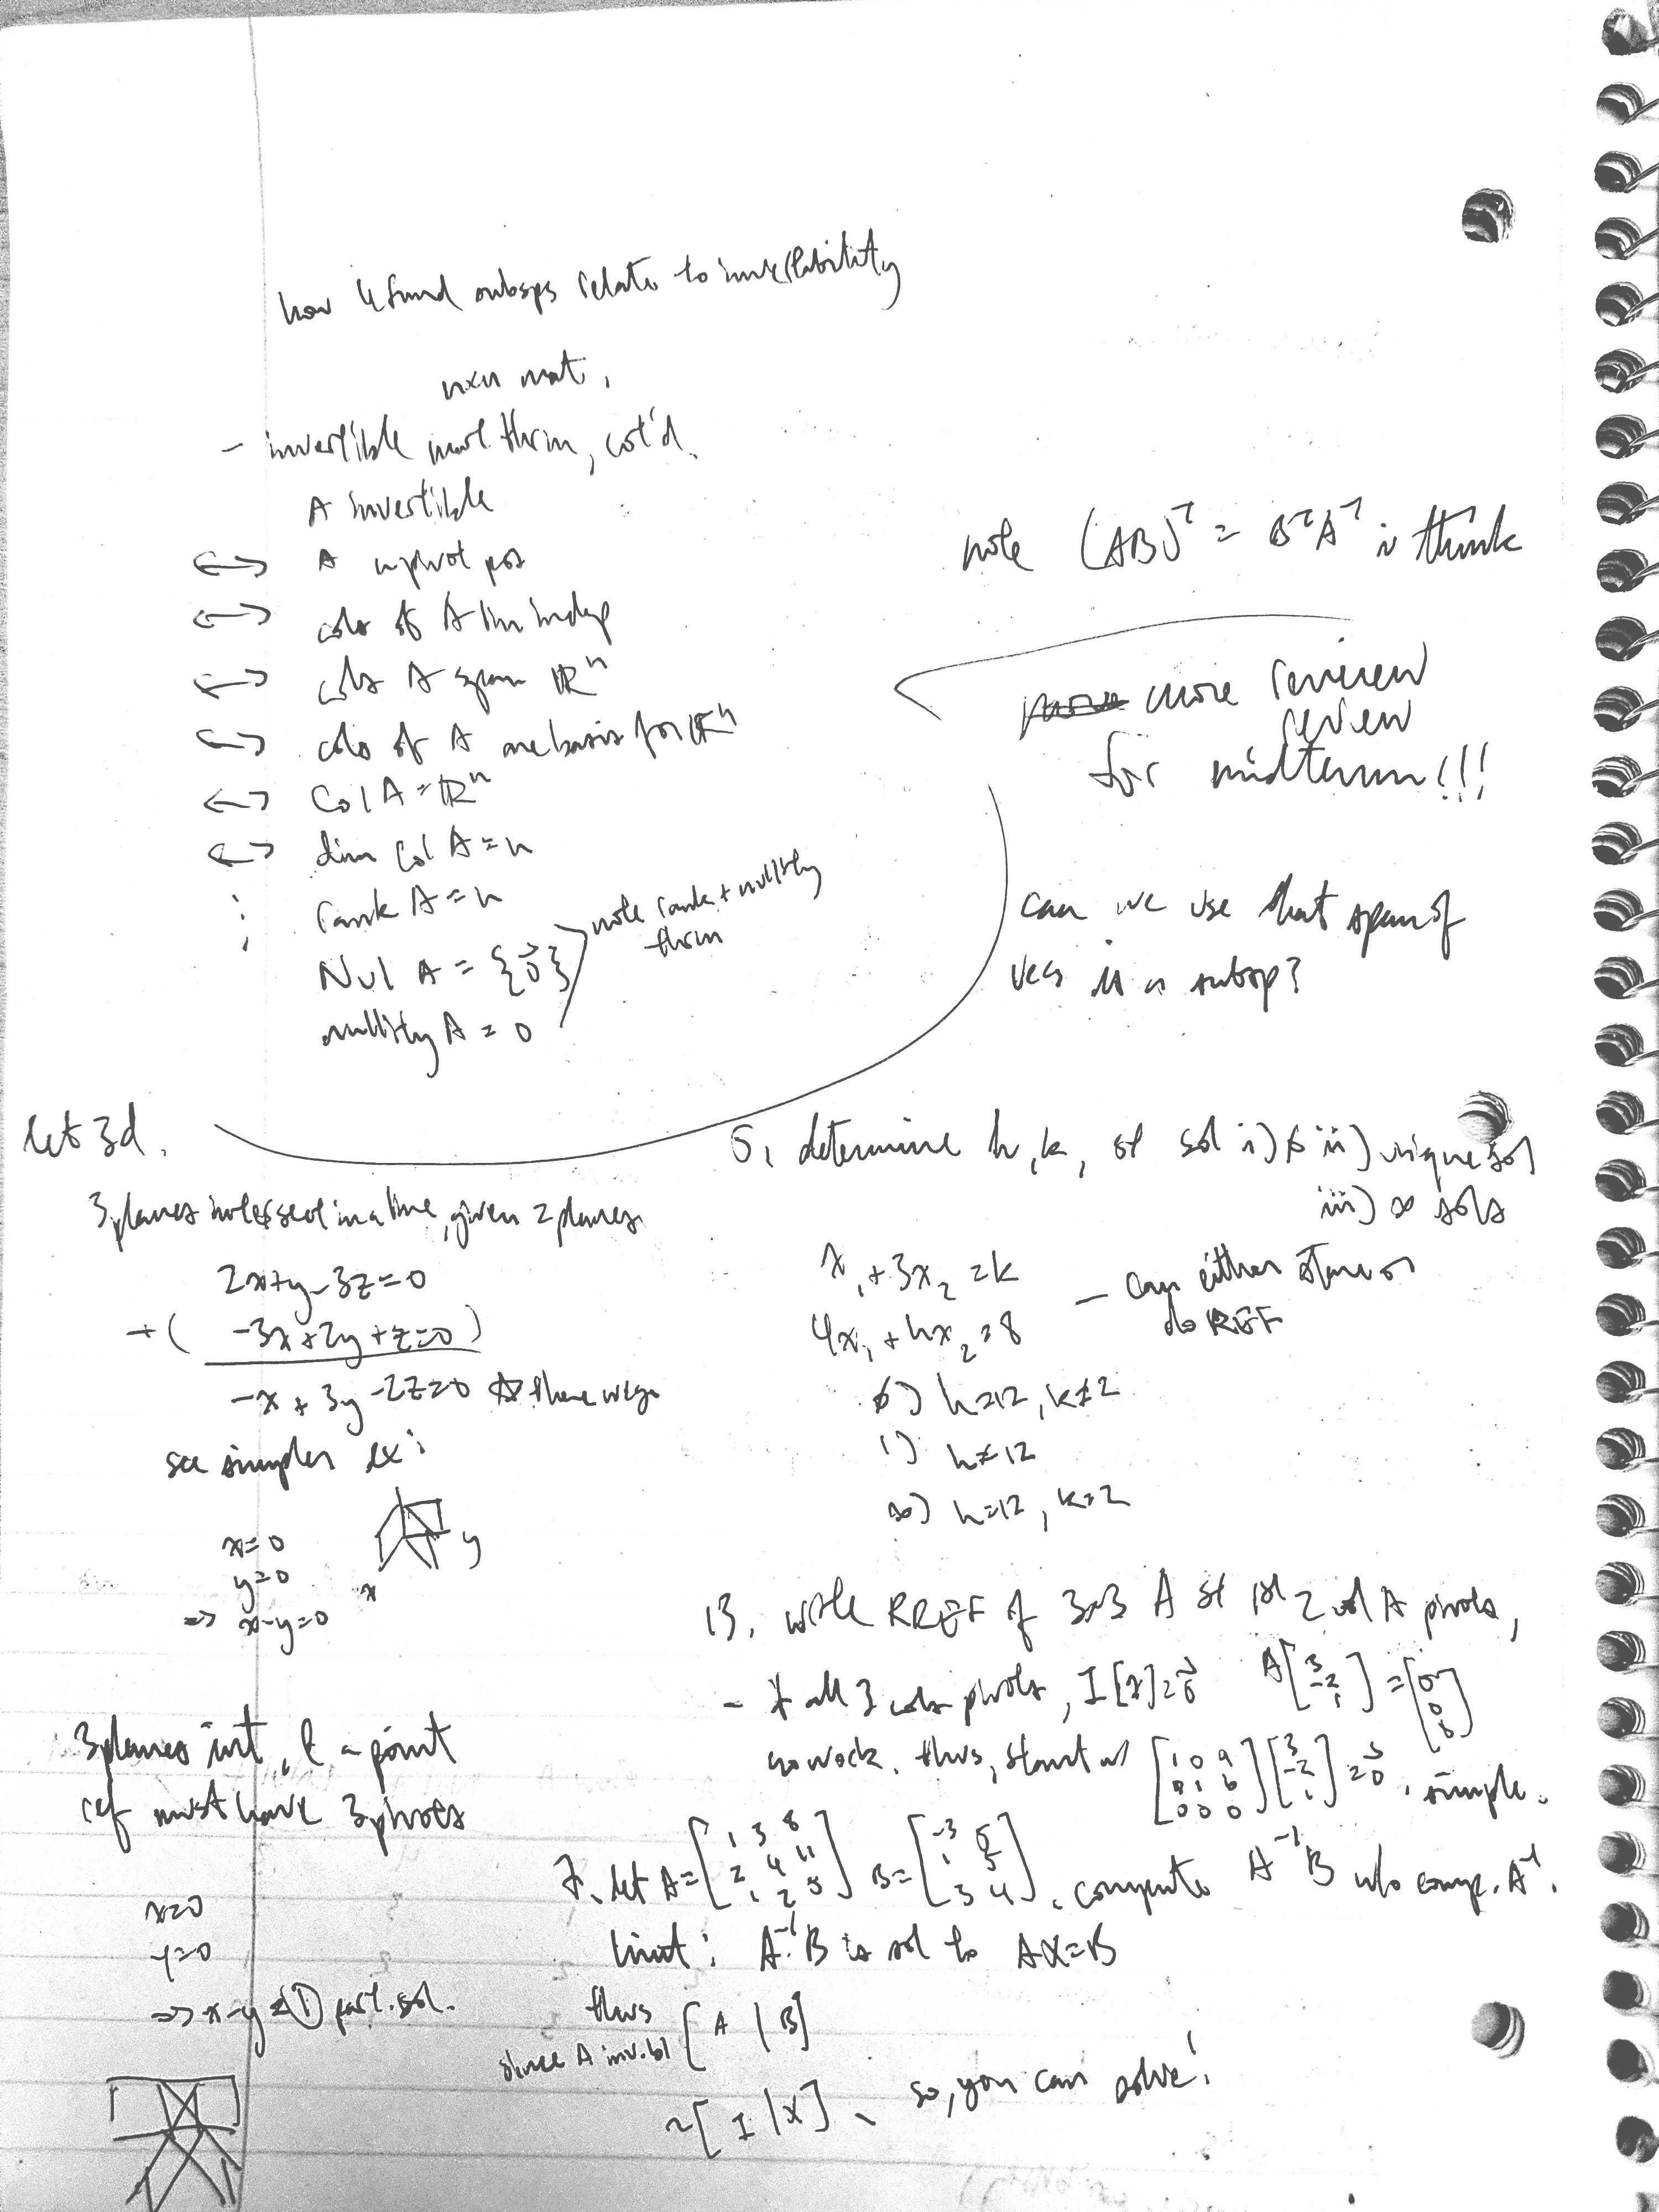 how 4 fund subsps relate to invertibility
nxn mat.
- invertible mat thrm, cot'd.
A invertible
↔ A n pivot pos
↔ cols of A lin indep
↔ cols A span ℝⁿ
↔ cols of A are basis for ℝⁿ
↔ Col A = ℝⁿ
↔ dim Col A = n
⋮ rank A = n
Nul A = {0⃗}
nullity A = 0
note rank + nullity
thrm
note (AB)ᵀ = Bᵀ Aᵀ i think
more review
review
for midterm!!!
can we use that span of
vecs is a subsp?
let 3d.
3 planes intersect in a line, given 2 planes
2x+y-3z=0
+( -3x+2y+z=0 )
-x+3y-2z=0
see simpler ex:
x=0
y=0
=> x-y=0
x
y
3 planes int. a point
ref must have 3 pivots
x=0
y=0
=> x-y=1 part. sol.
5. determine h,k, st sol i) ∅ ii) unique sol
iii) ∞ sols
x₁+3x₂=k
4x₁+hx₂=8
- can either stare or
do REF
∅) h=12, k≠2
1) h≠12
∞) h=12, k=2
13. write RREF of 3x3 A st 1st 2 col A pivots,
A[3 -2 1] = [0 0 0]
- if all 3 cols pivots, I[x]=0⃗
no work. thus, start w/ [1 0 a 0 1 b 0 0 0] [3 -2 1] = 0⃗. simple.
7. let A = [1 3 8 2 4 11 1 2 5] B = [-3 5 1 5 3 4]. compute A⁻¹B w/o comp. A⁻¹.
hint: A⁻¹B is sol to AX=B
thus
since A inv.bl [A | B]
~[I | X], so, you can solve!